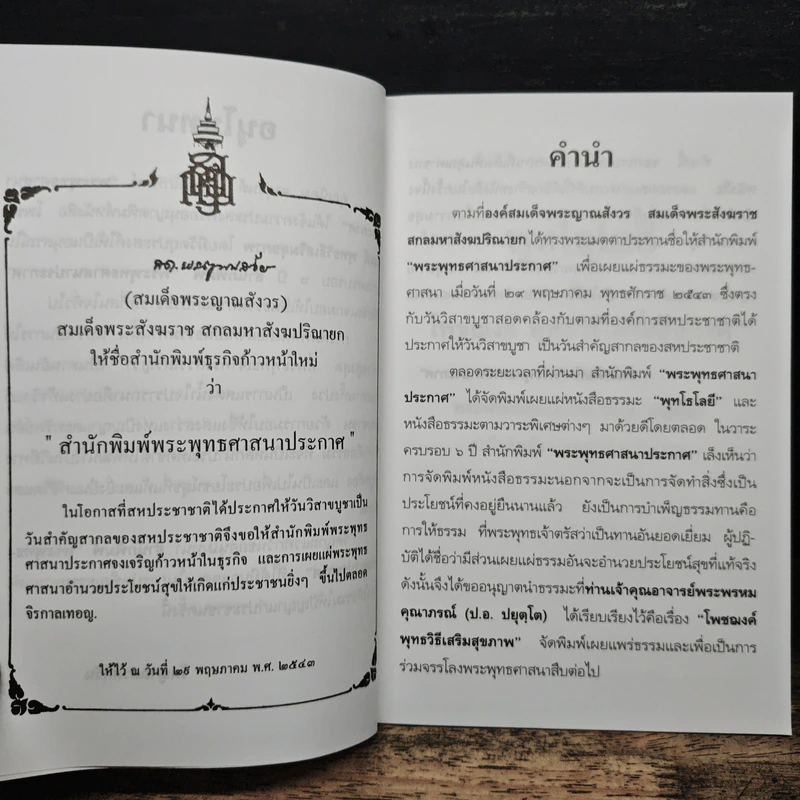 (สมเด็จพระญาณสังวร)
สมเด็จพระสังฆราช สกลมหาสังฆปริณายก
ให้ชื่อสำนักพิมพ์ธุรกิจก้าวหน้าใหม่
ว่า
" สำนักพิมพ์พระพุทธศาสนาประกาศ "
ในโอกาสที่สหประชาชาติได้ประกาศให้วันวิสาขบูชาเป็น
วันสำคัญสากลของสหประชาชาติจึงขอให้สำนักพิมพ์พระพุทธ
ศาสนาประกาศจงเจริญก้าวหน้าในธุรกิจ และการเผยแผ่พระพุทธ
ศาสนาอำนวยประโยชน์สุขให้เกิดแก่ประชาชนยิ่งๆ ขึ้นไปตลอด
จิรกาลเทอญ.
ให้ไว้ ณ วันที่ ๒๙ พฤษภาคม พ.ศ. ๒๕๔๓
คำนำ
ตามที่องค์สมเด็จพระญาณสังวร สมเด็จพระสังฆราช
สกลมหาสังฆปริณายก ได้ทรงพระเมตตาประทานชื่อให้สำนักพิมพ์
"พระพุทธศาสนาประกาศ" เพื่อเผยแผ่ธรรมะของพระพุทธ-
ศาสนา เมื่อวันที่ ๒๙ พฤษภาคม พุทธศักราช ๒๕๔๓ ซึ่งตรง
กับวันวิสาขบูชาสอดคล้องกับตามที่องค์การสหประชาชาติได้
ประกาศให้วันวิสาขบูชา เป็นวันสำคัญสากลของสหประชาชาติ
ตลอดระยะเวลาที่ผ่านมา สำนักพิมพ์ "พระพุทธศาสนา
ประกาศ" ได้จัดพิมพ์เผยแผ่หนังสือธรรมะ "พุทโธโลยี" และ
หนังสือธรรมะตามวาระพิเศษต่างๆ มาด้วยดีโดยตลอด ในวาระ
ครบรอบ ๖ ปี สำนักพิมพ์ "พระพุทธศาสนาประกาศ" เล็งเห็นว่า
การจัดพิมพ์หนังสือธรรมะนอกจากจะเป็นการจัดทำสิ่งซึ่งเป็น
ประโยชน์ที่คงอยู่ยืนนานแล้ว ยังเป็นการบำเพ็ญธรรมทานคือ
การให้ธรรม ที่พระพุทธเจ้าตรัสว่าเป็นทานอันยอดเยี่ยม ผู้ปฏิ-
บัติได้ชื่อว่ามีส่วนเผยแผ่ธรรมอันจะอำนวยประโยชน์สุขที่แท้จริง
ดังนั้นจึงได้ขออนุญาตนำธรรมะที่ท่านเจ้าคุณอาจารย์พระพรหม
คุณาภรณ์ (ป.อ. ปยุตฺโต) ได้เรียบเรียงไว้คือเรื่อง "โพชฌงค์
พุทธวิธีเสริมสุขภาพ" จัดพิมพ์เผยแพร่ธรรมและเพื่อเป็นการ
ร่วมจรรโลงพระพุทธศาสนาสืบต่อไป